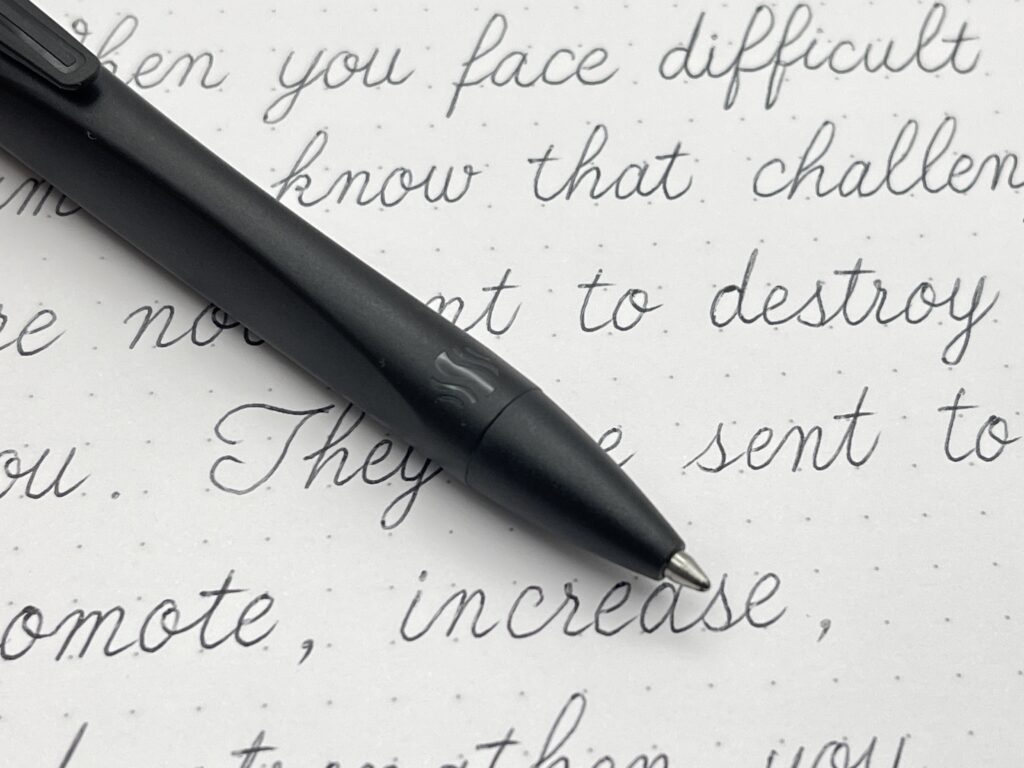 When you face difficult
know that challen
re not nt to destroy
ou. They e sent to
omote, increase,
strengthen you